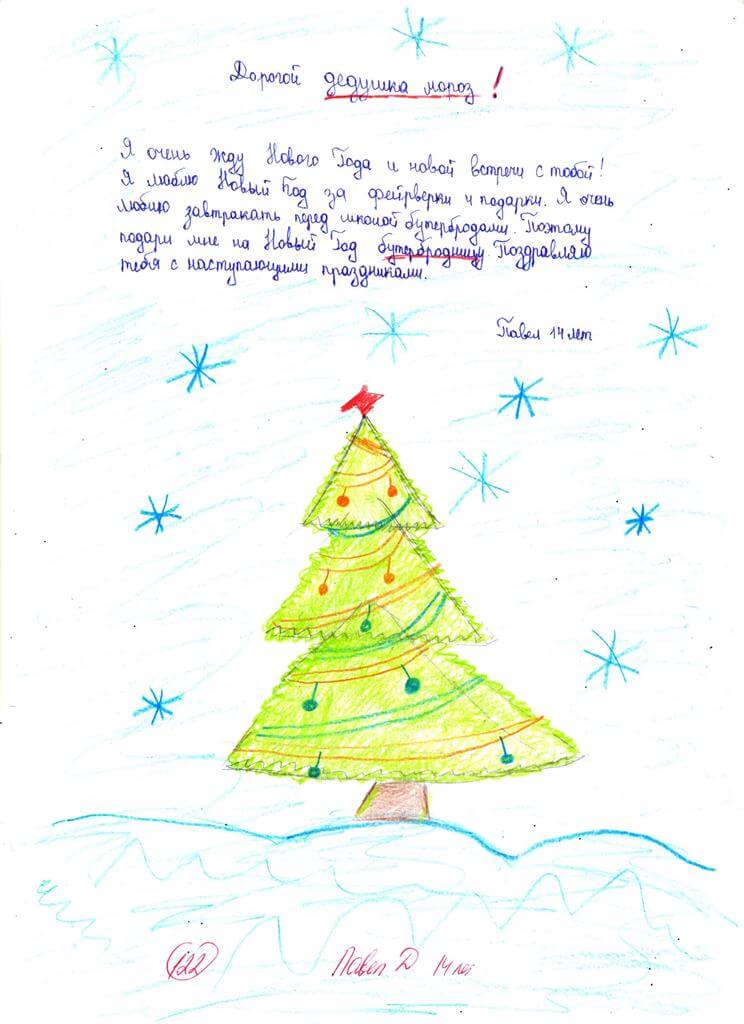 Дорогой дедушка мороз!
Я очень жду Нового Года и новой встречи с тобой!
Я люблю Новый Год за фейрверки и подарки. Я очень
люблю завтракать перед школой бутербродами. Поэтому
подари мне на Новый Год бутербродницу. Поздравляю
тебя с наступающими праздниками.
Павел 14 лет
122 Павел Д 14 лет